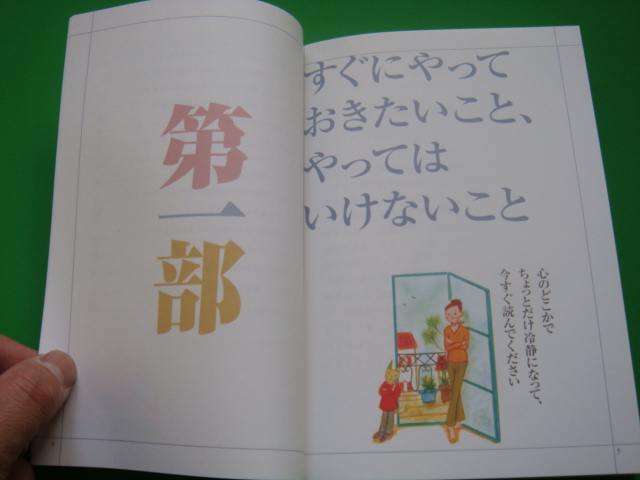 第一部
すぐにやって
おきたいこと、
やっては
いけないこと
心のどこかで
ちょっとだけ冷静になって、
今すぐ読んでください
5